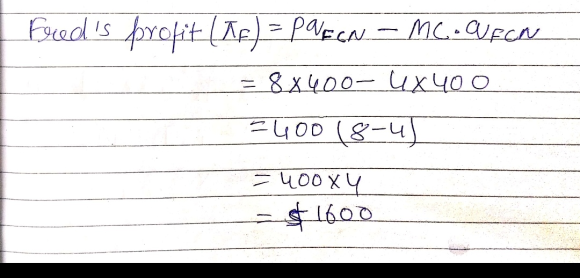 Fred's profit (πF) = PqFCN - MC.qFCN
= 8x400- 4x400
=400 (8-4)
= 400x4
= $1600